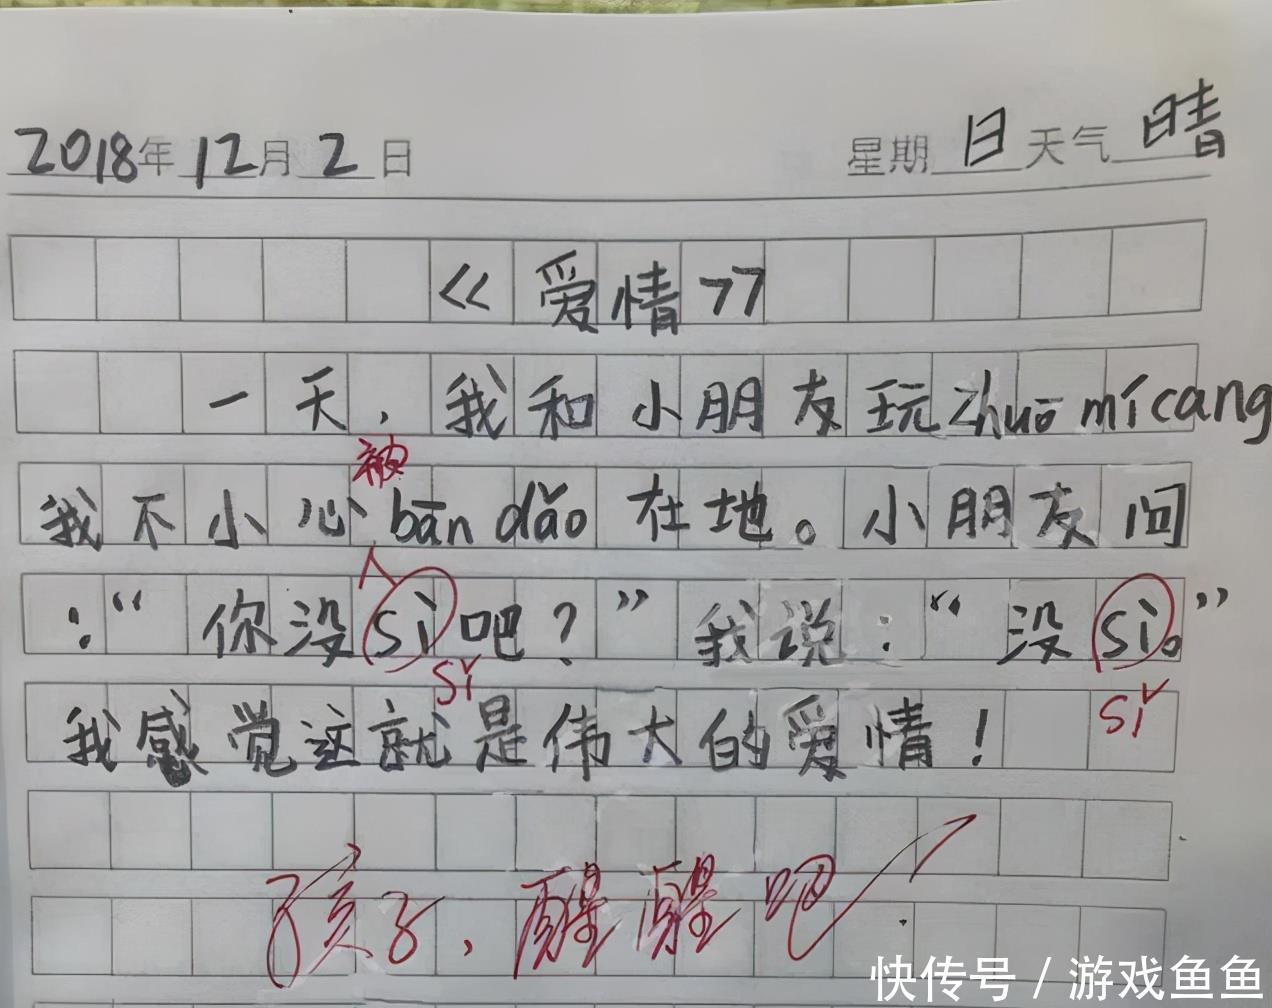 2018年12月2日 星期日天气晴
《爱情》
一天，我和小朋友玩zhuō mí cang
被
我不小心bān dǎo在地。小朋友问
：“你没sì吧？”我说：“没sì。”
sǐ sǐ
我感觉这就是伟大的爱情！
孩子，醒醒吧！
快传号/游戏鱼鱼